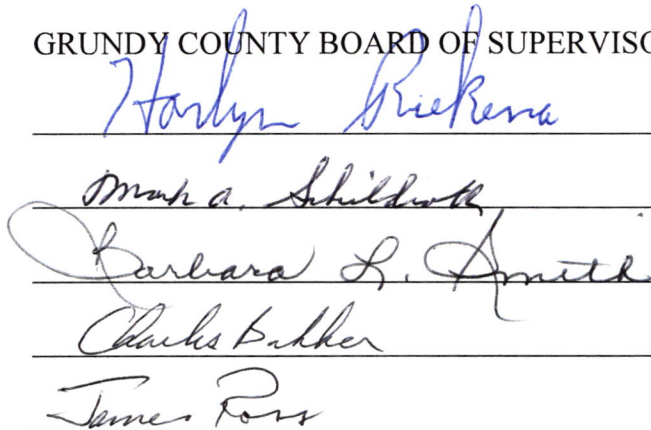 GRUNDY COUNTY BOARD OF SUPERVISO
Harlyn Riekena
Mark A. Schildroth
Barbara L. Smith
Charles Bakker
James Ross